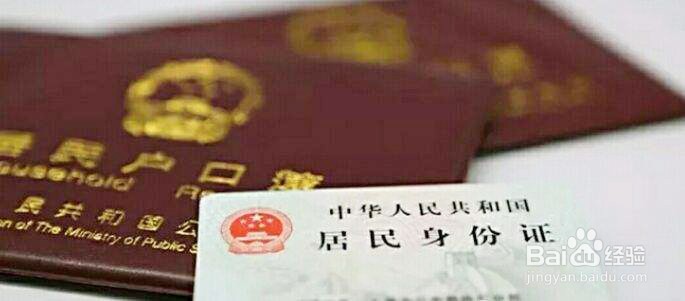 居民户口簿
Household Re
民共和国公
on of The Ministry of Public S
中华人民共和国
居民身份证
Bai经验
jingyan.baidu.com